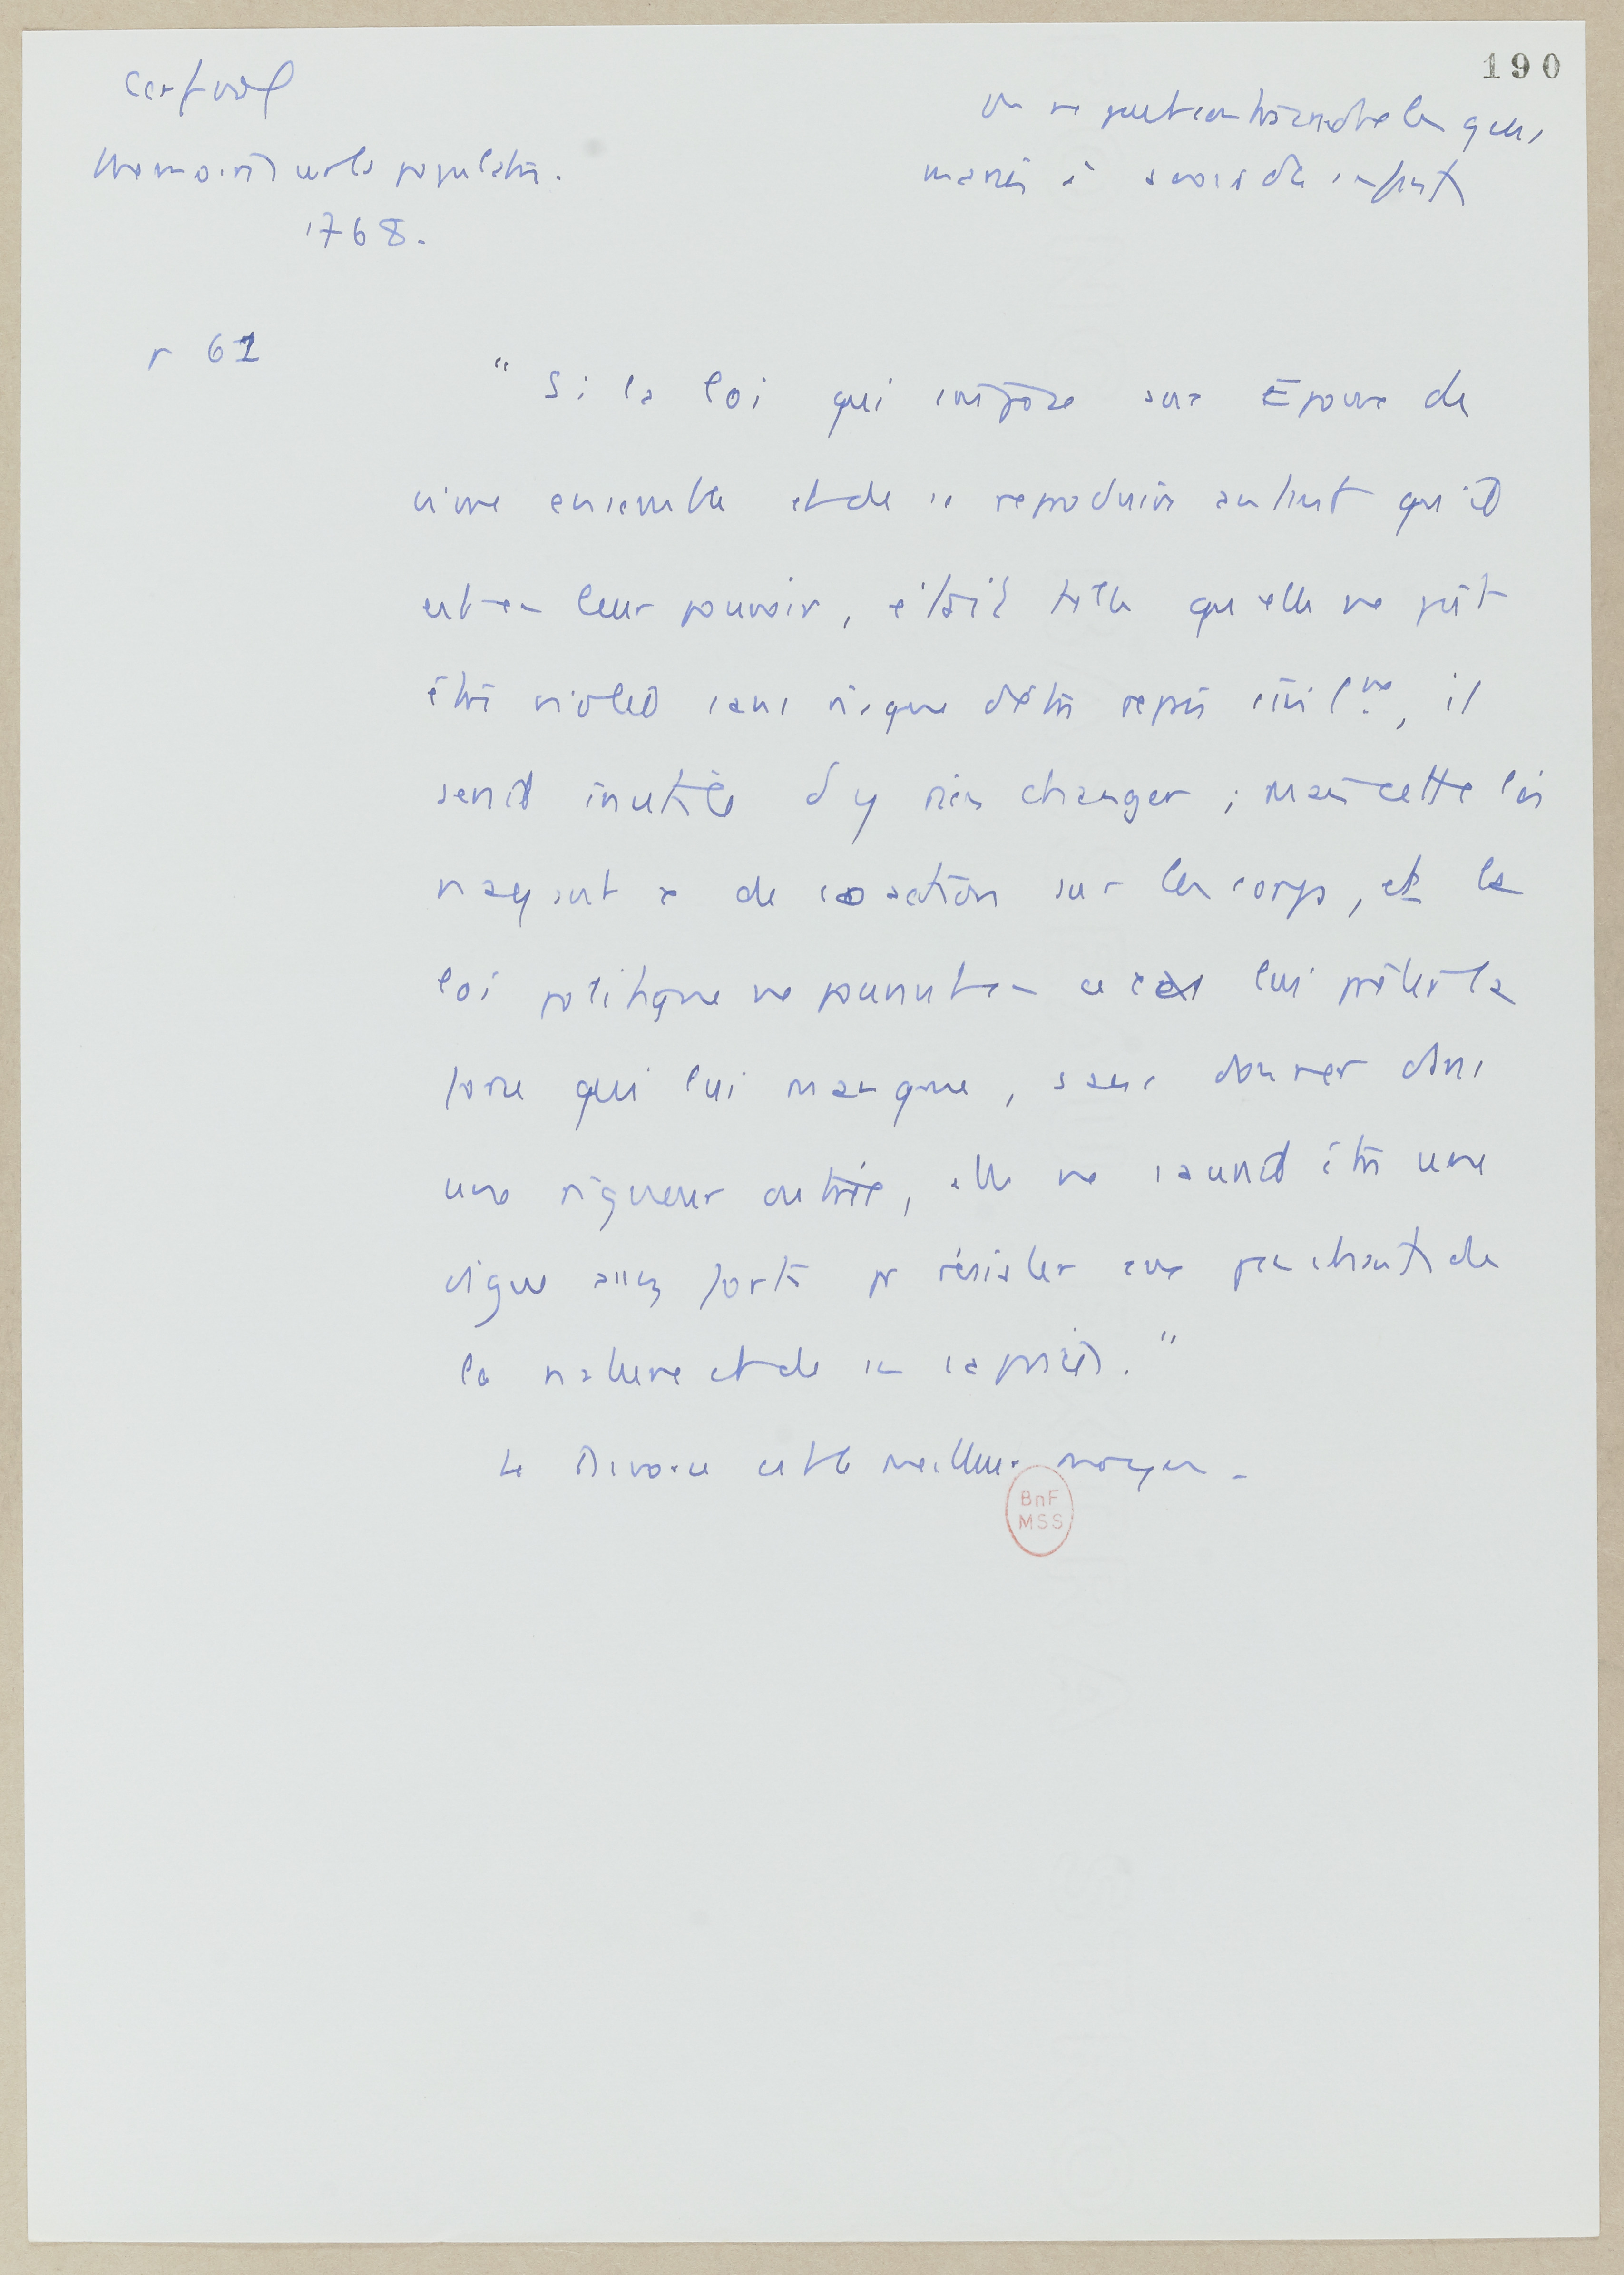 190
Cerfvol
Memoire sur la population.
1768.
On ne peut contraindre les gens
mariés à avoir des enfants
p 61
" Si la loi qui impose aux Epoux de
vivre ensemble et de se reproduire autant qu'il
est en leur pouvoir, était telle qu'elle ne pût
être violée sans risque d'être repris civil.me, il
serait inutile d'y rien changer ; mais cette loi
n'ayant de coaction sur les corps, et la
loi politique ne pouvant en ce cas lui prêter la
force qui lui manque, sans donner dans
une rigueur outrée, elle ne saurait être une
digue assez forte pr résister aux penchants de
la nature et de ses caprices."
Le Divorce est le meilleur moyen.
BnF
MSS